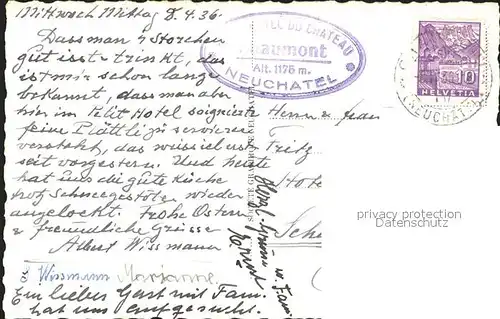 Mittwoch Mittag 8.4.36.
Dass man z Storchen
gut isst & trinkt, das
ist mir schon lange
bekannt, dass man aber
hier im Petit Hotel soignierte
feine Plättli zu servieren
versteht, das weiss ich erst
seit vorgestern. Und heute
hat uns die gute Küche
trotz Schneegestöber wieder
angelockt. Frohe Ostern
& freundliche Grüsse
Albert Wissmann
Wissmann Marianne
Ein lieber Gast mit Fam.
hat uns aufgesucht.
HOTEL DU CHATEAU
Chaumont
Alt. 1175 m.
NEUCHATEL
10
HELVETIA
(NEUCHATEL)
Herrn & Frau
Fritz
Hotel
Herzl. Grüsse u. Fam.
privacy protection
Datenschutz